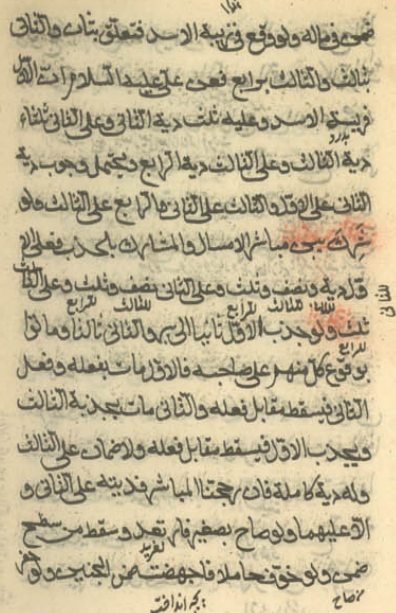 ضمن في ماله ولو وقع في زبية الاسد فتعلق بثان والثاني
بثالث والثالث برابع فعن علي عليه السلام ان الاول
فريسة الاسد وعليه ثلث دية الثاني وعلى الثاني ثلثا
دية الثالث وعلى الثالث دية الرابع ويحتمل وجوب دية
الثاني على الاول والثالث على الثاني والرابع على الثالث ولو
شركت بين مباشر الامساك والمشارك بالجذب فعلى الا
ول دية ونصف وثلث وعلى الثاني نصف وثلث وعلى الثالث
للثاني
للثالث للرابع للثالث للرابع
ثلث ولو جذب الاول ثانيا الى بير والثاني ثالثا وماتوا
للرابع
بوقوع كل منهم على صاحبه فالاول مات بفعله وفعل
الثاني فيسقط مقابل فعله والثاني مات بجذبه الثالث
ويجذب الاول فيسقط مقابل فعله ولا ضمان على الثالث
وله دية كاملة فان رجحنا المباشر فديته على الثاني و
الا عليهما ولو صاح بصغير فارتعد وسقط من سطح
ضمن ولو خوف حاملا فاجهضت ضمن الجنين ولو